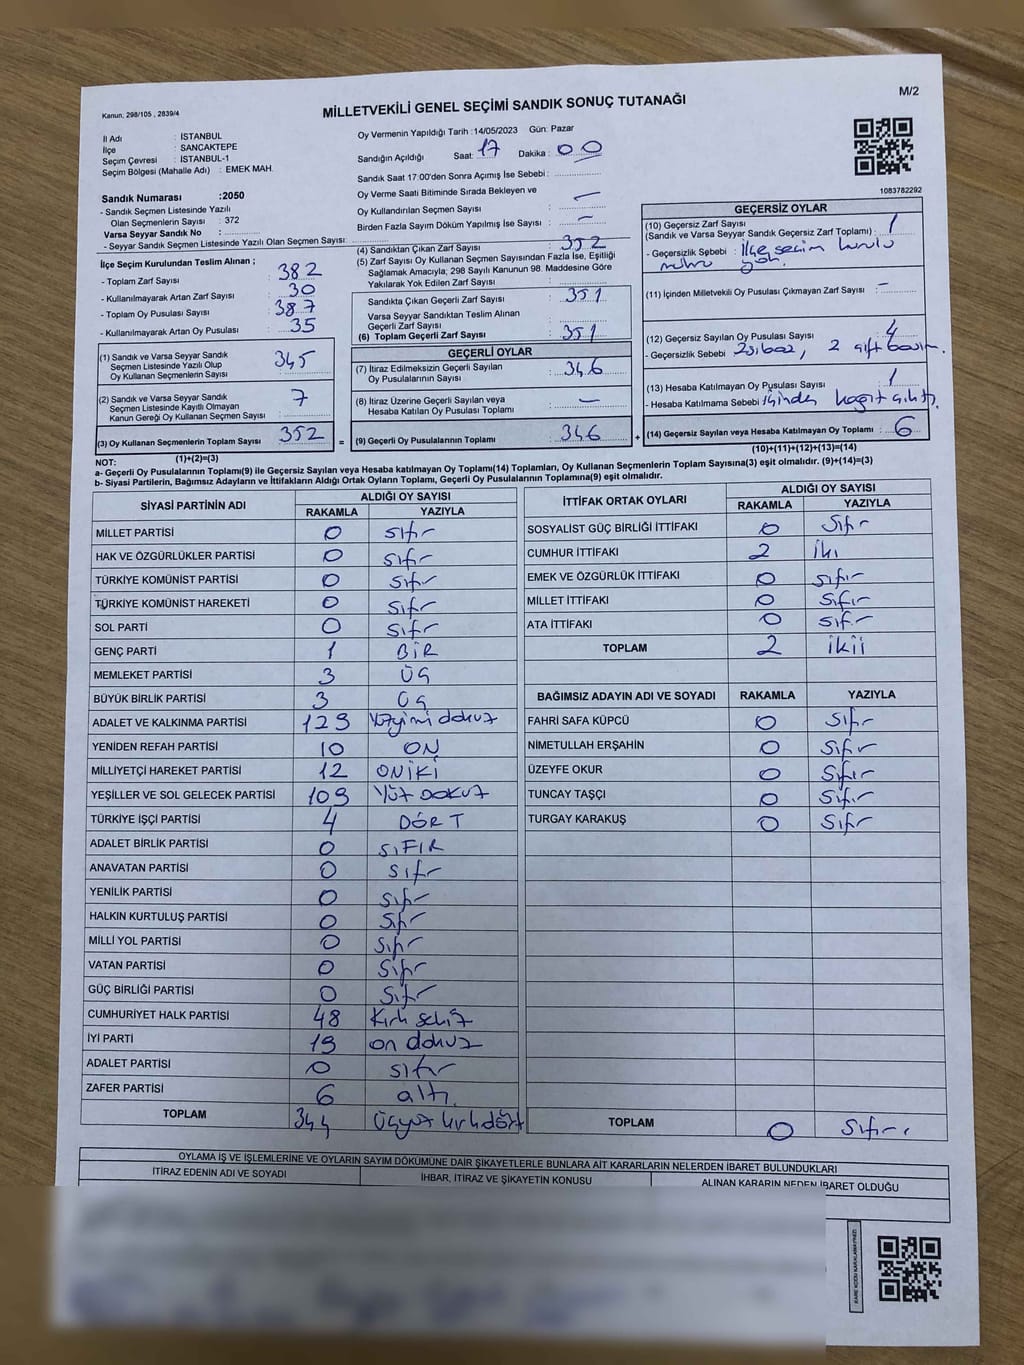 M/2
Kanun, 298/105 , 2839/4
MİLLETVEKİLİ GENEL SEÇİMİ SANDIK SONUÇ TUTANAĞI
İl Adı : İSTANBUL
İlçe : SANCAKTEPE
Seçim Çevresi : İSTANBUL-1
Seçim Bölgesi (Mahalle Adı) : EMEK MAH.
Sandık Numarası :2050
- Sandık Seçmen Listesinde Yazılı
Olan Seçmenlerin Sayısı : 372
Varsa Seyyar Sandık No :
- Seyyar Sandık Seçmen Listesinde Yazılı Olan Seçmen Sayısı:
İlçe Seçim Kurulundan Teslim Alınan ;
- Toplam Zarf Sayısı : 382
- Kullanılmayarak Artan Zarf Sayısı : 30
- Toplam Oy Pusulası Sayısı : 387
- Kullanılmayarak Artan Oy Pusulası : 35
(1) Sandık ve Varsa Seyyar Sandık
Seçmen Listesinde Yazılı Olup
Oy Kullanan Seçmenlerin Sayısı : 345
(2) Sandık ve Varsa Seyyar Sandık
Seçmen Listesinde Kayıtlı Olmayan
Kanun Gereği Oy Kullanan Seçmen Sayısı : 7
(3) Oy Kullanan Seçmenlerin Toplam Sayısı : 352
(1)+(2)=(3)
Oy Vermenin Yapıldığı Tarih :14/05/2023 Gün: Pazar
Sandığın Açıldığı Saat: 17 Dakika : 00
Sandık Saat 17:00'den Sonra Açımış İse Sebebi :
Oy Verme Saati Bitiminde Sırada Bekleyen ve
Oy Kullandırılan Seçmen Sayısı : —
Birden Fazla Sayım Döküm Yapılmış İse Sayısı : —
(4) Sandıktan Çıkan Zarf Sayısı : 352
(5) Zarf Sayısı Oy Kullanan Seçmen Sayısından Fazla İse, Eşitliği
Sağlamak Amacıyla; 298 Sayılı Kanunun 98. Maddesine Göre
Yakılarak Yok Edilen Zarf Sayısı :
Sandıkta Çıkan Geçerli Zarf Sayısı : 351
Varsa Seyyar Sandıktan Teslim Alınan
Geçerli Zarf Sayısı :
(6) Toplam Geçerli Zarf Sayısı : 351
GEÇERLİ OYLAR
(7) İtiraz Edilmeksizin Geçerli Sayılan
Oy Pusulalarının Sayısı : 346
(8) İtiraz Üzerine Geçerli Sayılan veya
Hesaba Katılan Oy Pusulası Toplamı : —
= (9) Geçerli Oy Pusulalarının Toplamı : 346
1083782292
GEÇERSİZ OYLAR
(10) Geçersiz Zarf Sayısı
(Sandık ve Varsa Seyyar Sandık Geçersiz Zarf Toplamı) : 1
- Geçersizlik Sebebi : ilçe seçim kurulu
mührü yok.
(11) İçinden Milletvekili Oy Pusulası Çıkmayan Zarf Sayısı : —
(12) Geçersiz Sayılan Oy Pusulası Sayısı : 4
- Geçersizlik Sebebi : 2 çift basım.
(13) Hesaba Katılmayan Oy Pusulası Sayısı : 1
- Hesaba Katılmama Sebebi : içinden kağıt çıktı.
+ (14) Geçersiz Sayılan veya Hesaba Katılmayan Oy Toplamı : 6
(10)+(11)+(12)+(13)=(14)
NOT:
a- Geçerli Oy Pusulalarının Toplamı(9) ile Geçersiz Sayılan veya Hesaba katılmayan Oy Toplamı(14) Toplamları, Oy Kullanan Seçmenlerin Toplam Sayısına(3) eşit olmalıdır. (9)+(14)=(3)
b- Siyasi Partilerin, Bağımsız Adayların ve İttifakların Aldığı Ortak Oyların Toplamı, Geçerli Oy Pusulalarının Toplamına(9) eşit olmalıdır.
SİYASİ PARTİNİN ADI ALDIĞI OY SAYISI
RAKAMLA YAZIYLA
MİLLET PARTİSİ 0 sıfır
HAK VE ÖZGÜRLÜKLER PARTİSİ 0 sıfır
TÜRKİYE KOMÜNİST PARTİSİ 0 sıfır
TÜRKİYE KOMÜNİST HAREKETİ 0 sıfır
SOL PARTİ 0 sıfır
GENÇ PARTİ 1 BİR
MEMLEKET PARTİSİ 3 ÜÇ
BÜYÜK BİRLİK PARTİSİ 3 ÜÇ
ADALET VE KALKINMA PARTİSİ 129 Yüzyirmi dokuz
YENİDEN REFAH PARTİSİ 10 ON
MİLLİYETÇİ HAREKET PARTİSİ 12 ONİKİ
YEŞİLLER VE SOL GELECEK PARTİSİ 109 Yüz DOKUZ
TÜRKİYE İŞÇİ PARTİSİ 4 DÖRT
ADALET BİRLİK PARTİSİ 0 SIFIR
ANAVATAN PARTİSİ 0 sıfır
YENİLİK PARTİSİ 0 sıfır
HALKIN KURTULUŞ PARTİSİ 0 sıfır
MİLLİ YOL PARTİSİ 0 sıfır
VATAN PARTİSİ 0 sıfır
GÜÇ BİRLİĞİ PARTİSİ 0 sıfır
CUMHURİYET HALK PARTİSİ 48 Kırk sekiz
İYİ PARTİ 19 on dokuz
ADALET PARTİSİ 0 sıfır
ZAFER PARTİSİ 6 altı
TOPLAM 344 üçyüz kırkdört
İTTİFAK ORTAK OYLARI ALDIĞI OY SAYISI
RAKAMLA YAZIYLA
SOSYALİST GÜÇ BİRLİĞİ İTTİFAKI 0 sıfır
CUMHUR İTTİFAKI 2 iki
EMEK VE ÖZGÜRLÜK İTTİFAKI 0 sıfır
MİLLET İTTİFAKI 0 sıfır
ATA İTTİFAKI 0 sıfır
TOPLAM 2 ikii
BAĞIMSIZ ADAYIN ADI VE SOYADI RAKAMLA YAZIYLA
FAHRİ SAFA KÜPCÜ 0 sıfır
NİMETULLAH ERŞAHİN 0 sıfır
ÜZEYFE OKUR 0 sıfır
TUNCAY TAŞÇI 0 sıfır
TURGAY KARAKUŞ 0 sıfır
TOPLAM 0 sıfır
OYLAMA İŞ VE İŞLEMLERİNE VE OYLARIN SAYIM DÖKÜMÜNE DAİR ŞİKAYETLERLE BUNLARA AİT KARARLARIN NELERDEN İBARET BULUNDUKLARI
İTİRAZ EDENİN ADI VE SOYADI İHBAR, İTİRAZ VE ŞİKAYETİN KONUSU ALINAN KARARIN NEDEN İBARET OLDUĞU